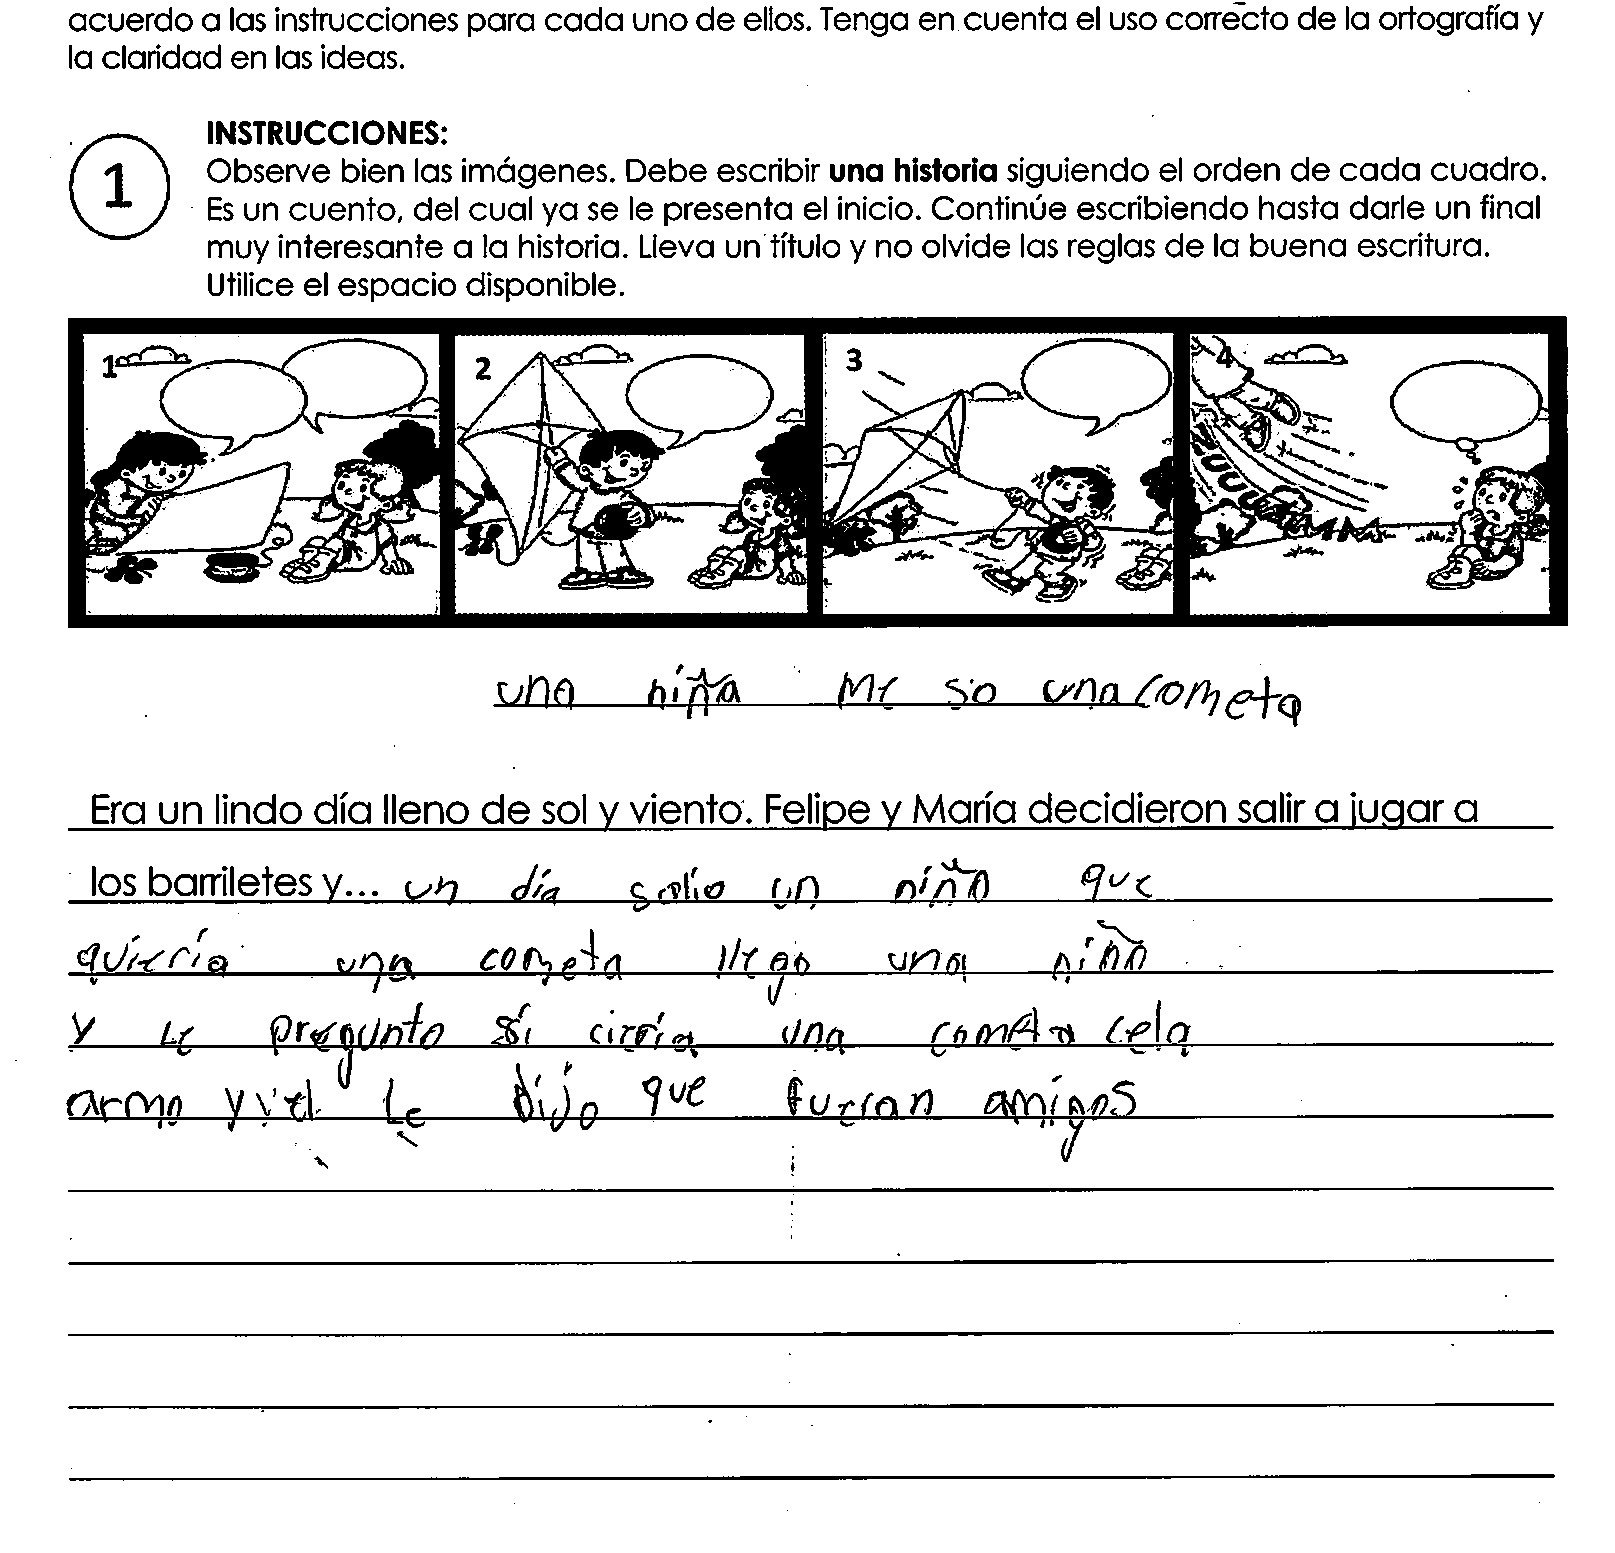 acuerdo a las instrucciones para cada uno de ellos. Tenga en cuenta el uso correcto de la ortografía y
la claridad en las ideas.
1
INSTRUCCIONES:
Observe bien las imágenes. Debe escribir una historia siguiendo el orden de cada cuadro.
Es un cuento, del cual ya se le presenta el inicio. Continúe escribiendo hasta darle un final
muy interesante a la historia. Lleva un título y no olvide las reglas de la buena escritura.
Utilice el espacio disponible.
1 2 3 4
una niña me so una cometa
Era un lindo día lleno de sol y viento. Felipe y María decidieron salir a jugar a
los barriletes y... un día salio un niño que
quierria una cometa llego una niña
y le pregunto si cirria una cometa cela
armo y el le dijo que fueran amigos